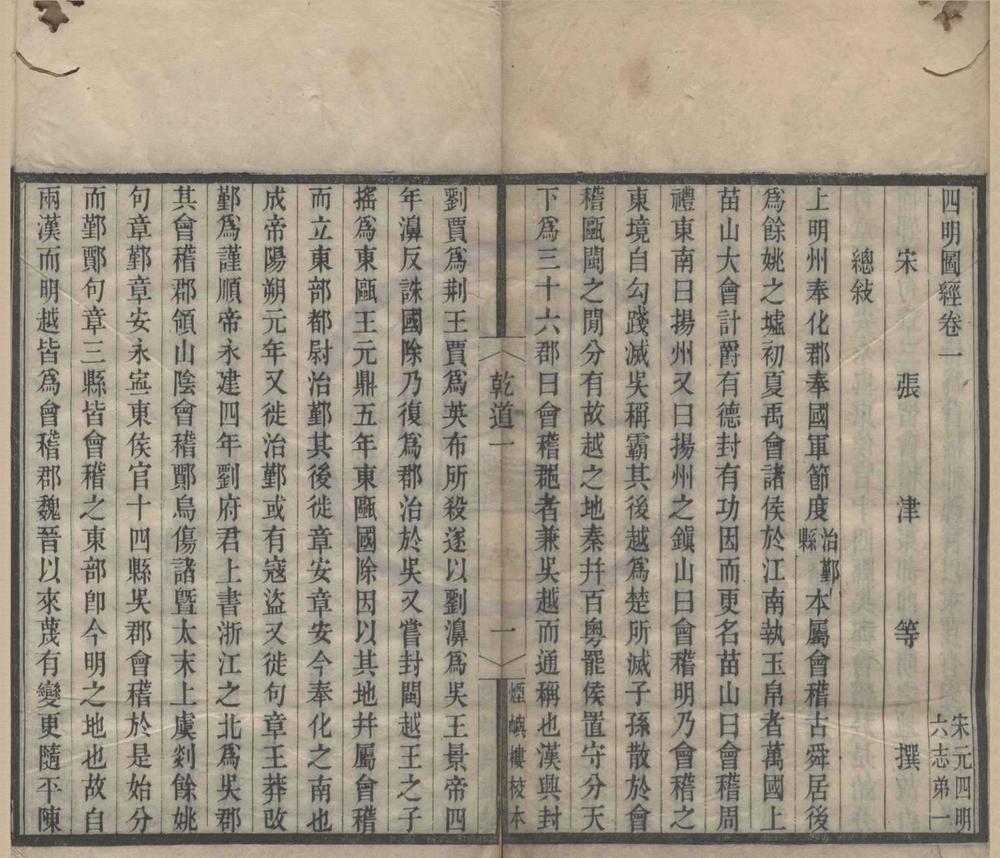 四明圖經卷一
宋元四明
六志弟一
宋張津等撰
總敍
上明州奉化郡奉國軍節度治鄞縣本屬會稽古舜居後
爲餘姚之墟初夏禹會諸侯於江南執玉帛者萬國上
苗山大會計爵有德封有功因而更名苗山曰會稽周
禮東南曰揚州又曰揚州之鎭山曰會稽明乃會稽之
東境自勾踐滅吳稱霸其後越爲楚所滅子孫散於會
稽甌閩之閒分有故越之地秦幷百粵罷侯置守分天
下爲三十六郡曰會稽郡者兼吳越而通稱也漢興封
乾道一
一
煙嶼樓校本
劉賈爲荆王賈爲英布所殺遂以劉濞爲吳王景帝四
年濞反誅國除乃復爲郡治於吳又嘗封閩越王之子
搖爲東甌王元鼎五年東甌國除因以其地幷屬會稽
而立東部都尉治鄞其後徙章安章安今奉化之南也
成帝陽朔元年又徙治鄞或有寇盜又徙句章王莽改
鄞爲謹順帝永建四年劉府君上書浙江之北爲吳郡
其會稽郡領山陰會稽鄮烏傷諸曁太末上虞剡餘姚
句章鄞章安永寍東侯官十四縣吳郡會稽於是始分
而鄞鄮句章三縣皆會稽之東部卽今明之地也故自
兩漢而明越皆爲會稽郡魏晉以來蔑有變更隨平陳